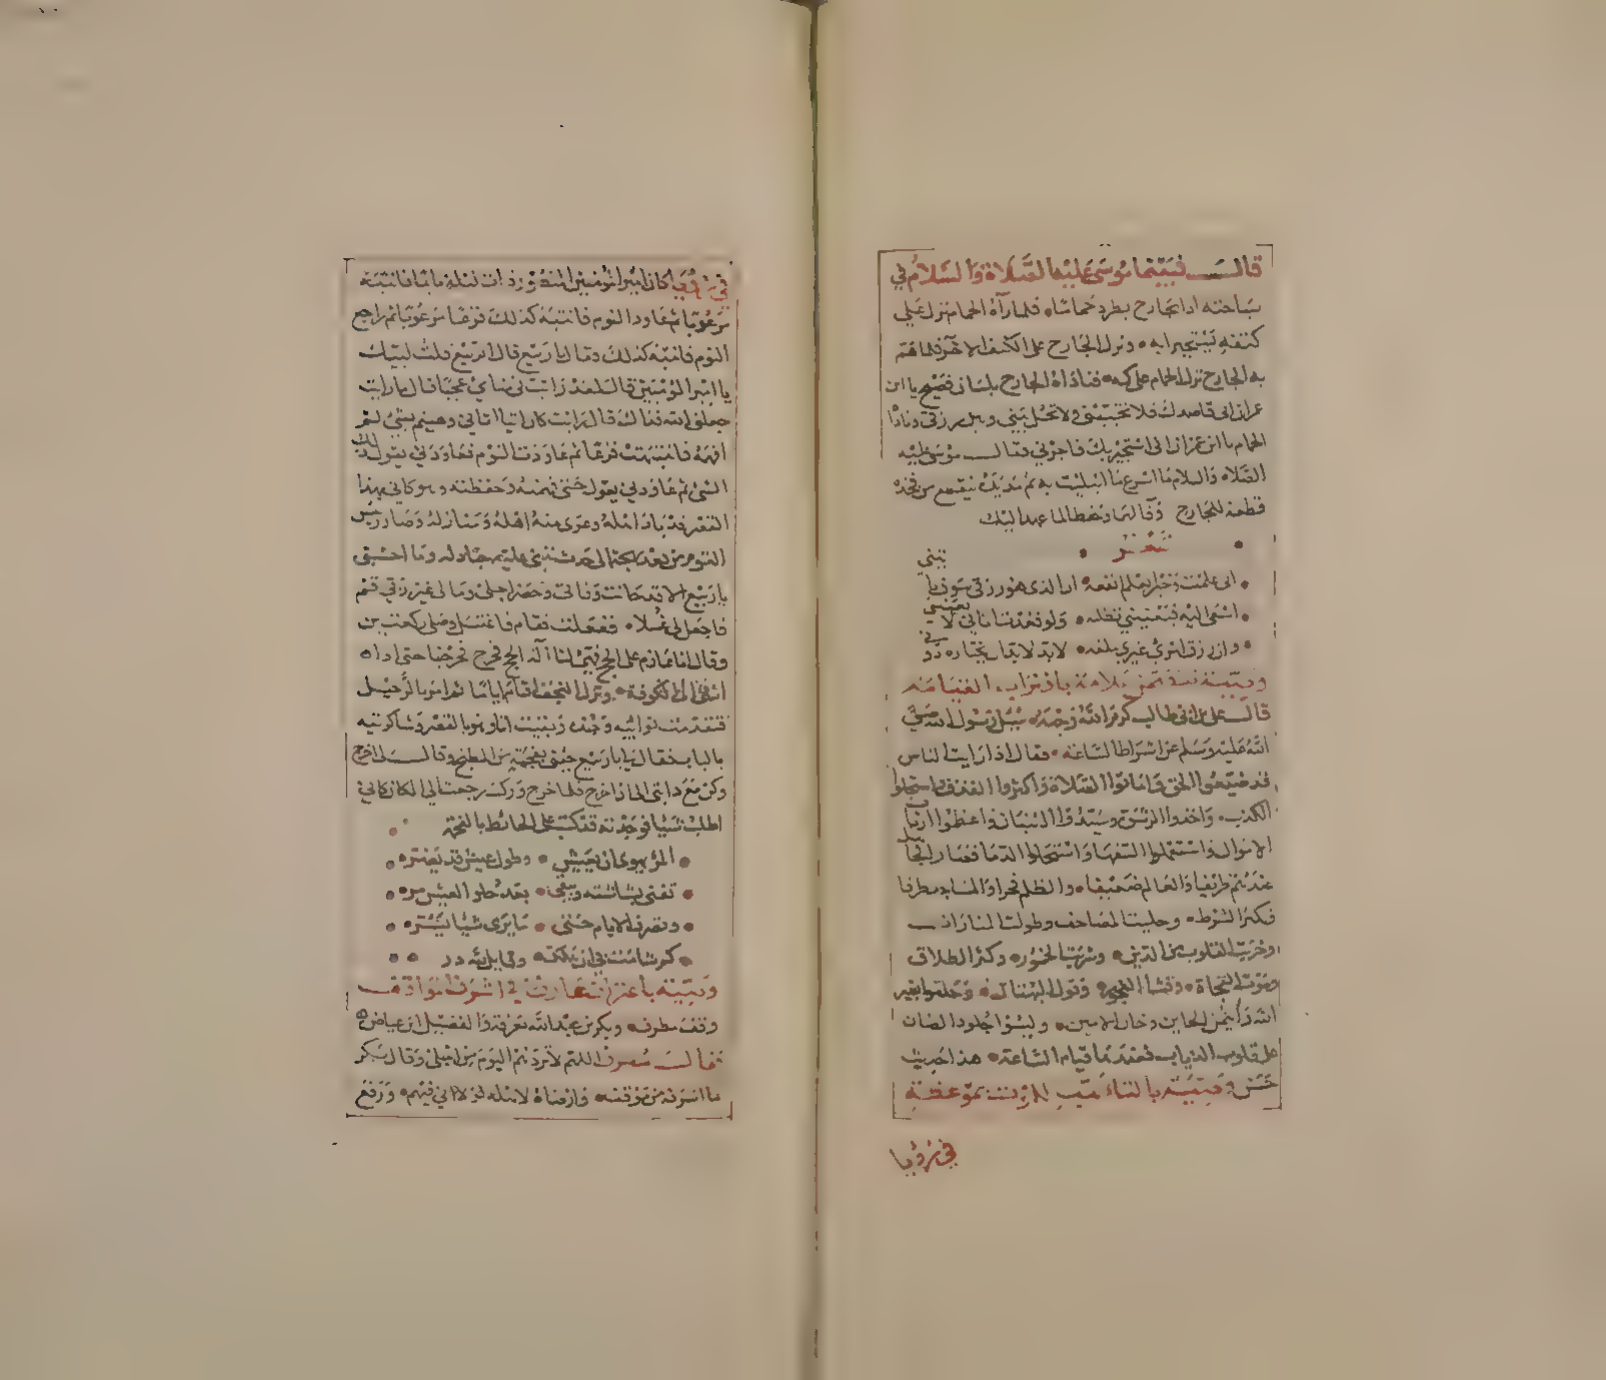 قالــت فبينما موسى عليه الصلاة والسلام في
سياحته اذا بجارح يطرد حماما • فلما رآه الحمام نزل على
كتفه يستجير به • ونزل الجارح على الكتف الاخر فلما هم
به الجارح نزل الحمام على كمه • فناداه الجارح بلسان فصيح يا ابن
عمران انى قاصدك فلا تخيبني ولا تحل بيني وبين رزقي ونادا
الحمام يا ابن عمران انى استجير بك فاجرني فقالــ موسى عليه
الصلاه والسلام ما اسرع ما ابتليت به ثم مد يده ليقطع من فخذه
قطعة للجارح وفا لهما وحفظا لما عهد اليك
شعر
انى علمت وخير العلم انفعه • ان الذى هو رزقي سوف يا تيني
اسعى اليه فيعييني تطلبه • ولو قعدت اتاني لا يعنيني
وان رزق امرئ غيري يبلغه • لابد لابد ان يختاره دوني
قالــ على بن ابى طالب كرم الله وجهه • سئل رسول الله صلى
الله عليه وسلم عن اشراط الساعة • فقال اذا رايت الناس
قد ضيعوا الحق واماتوا الصلاة واكثروا القذف واستحلوا
الكذب • واخذوا الرشوة وشيدوا البنيان واعظموا ارباب
الاموال واستعملوا السفها واستحلوا الدما فصار الجاهل
عندهم ظريفا والعالم ضعيفا • والظلم فخرا والمساجد طرقا
فتكثر الشرط • وحليت المصاحف وطولت المنارات
وخربت القلوب من الدين • وشربت الخمور • وكثر الطلاق
وموت الفجاة • وفشا الفجور • وقول البهتان • وحلفوا بغير
الله وائتمن الخاين وخان الامين • ولبسوا جلود الضان
على قلوب الذياب فعندها قيام الساعة • هذا حديث
حسن
في رؤيا
في رؤيا كان امير المؤمنين المنصور ذات ليلة نائما فانتبه
مرعوبا ثم عاود النوم فانتبه كذلك فزعا مرعوبا ثم راجع
النوم فانتبه كذلك وقال يا ربيع قال الربيع قلت لبيك
يا امير المؤمنين قال لقد رايت في منامي عجبا قال ما رايت
جعلني الله فداك قال رايت كان اتيا اتاني وهينم بشئ لم
افهمه فانتبهت فزعا ثم عاودت النوم فعاودني يقول ذلك
الشئ ثم عاودني يقوله حتى فهمته وحفظته وهو كاني بهذا
القصر قد باد اهله وعرى منه اهله ومنازله وصار رئيس
القوم من بعد بهجة الى جدث تبنى عليه جنادله وما احسبني
يا ربيع الا قد حانت وفاتي وحضر اجلي وما لى غير ربي قم
فاجعل لى غسلا • ففعلت فقام فاغتسل وصلى ركعتين
وقال انا عازم على الحج فهيئ لنا آلة الحج فخرج وخرجنا حتى اذا
انتهى الى الكوفة • ونزل النجف اقام اياما ثم امر بالرحيل
فتقدمت نوابه وجنده وبقيت انا وهو بالقصر وشاكريته
بالباب فقال لي يا ربيع جئني بفحمة من المطبخ وقالــ لى اخرج
وكن مع دابتى الى ان اخرج فلما خرج وركب رجعت الى المكان كاني
اطلب شيا فوجدته قد كتب على الحائط بالفحمة
المرء يهوى ان يعيش • وطول عيش قد يضره
تفنى بشاشته ويبقى • بعد حلو العيش مره
وتصرف الايام حتى • ما يرى شيئا يسره
كم شامت بي ان هلكت • وقايل لله دره
وقف مطرف • وبكر بن عبد الله بعرفة والفضيل ابن عياض
فقالــ مطرف اللهم لا تردهم اليوم من اجلي وقال بكر
ما اشرفه من موقف • وارضاه لاهله لولا اني فيهم • ورفع